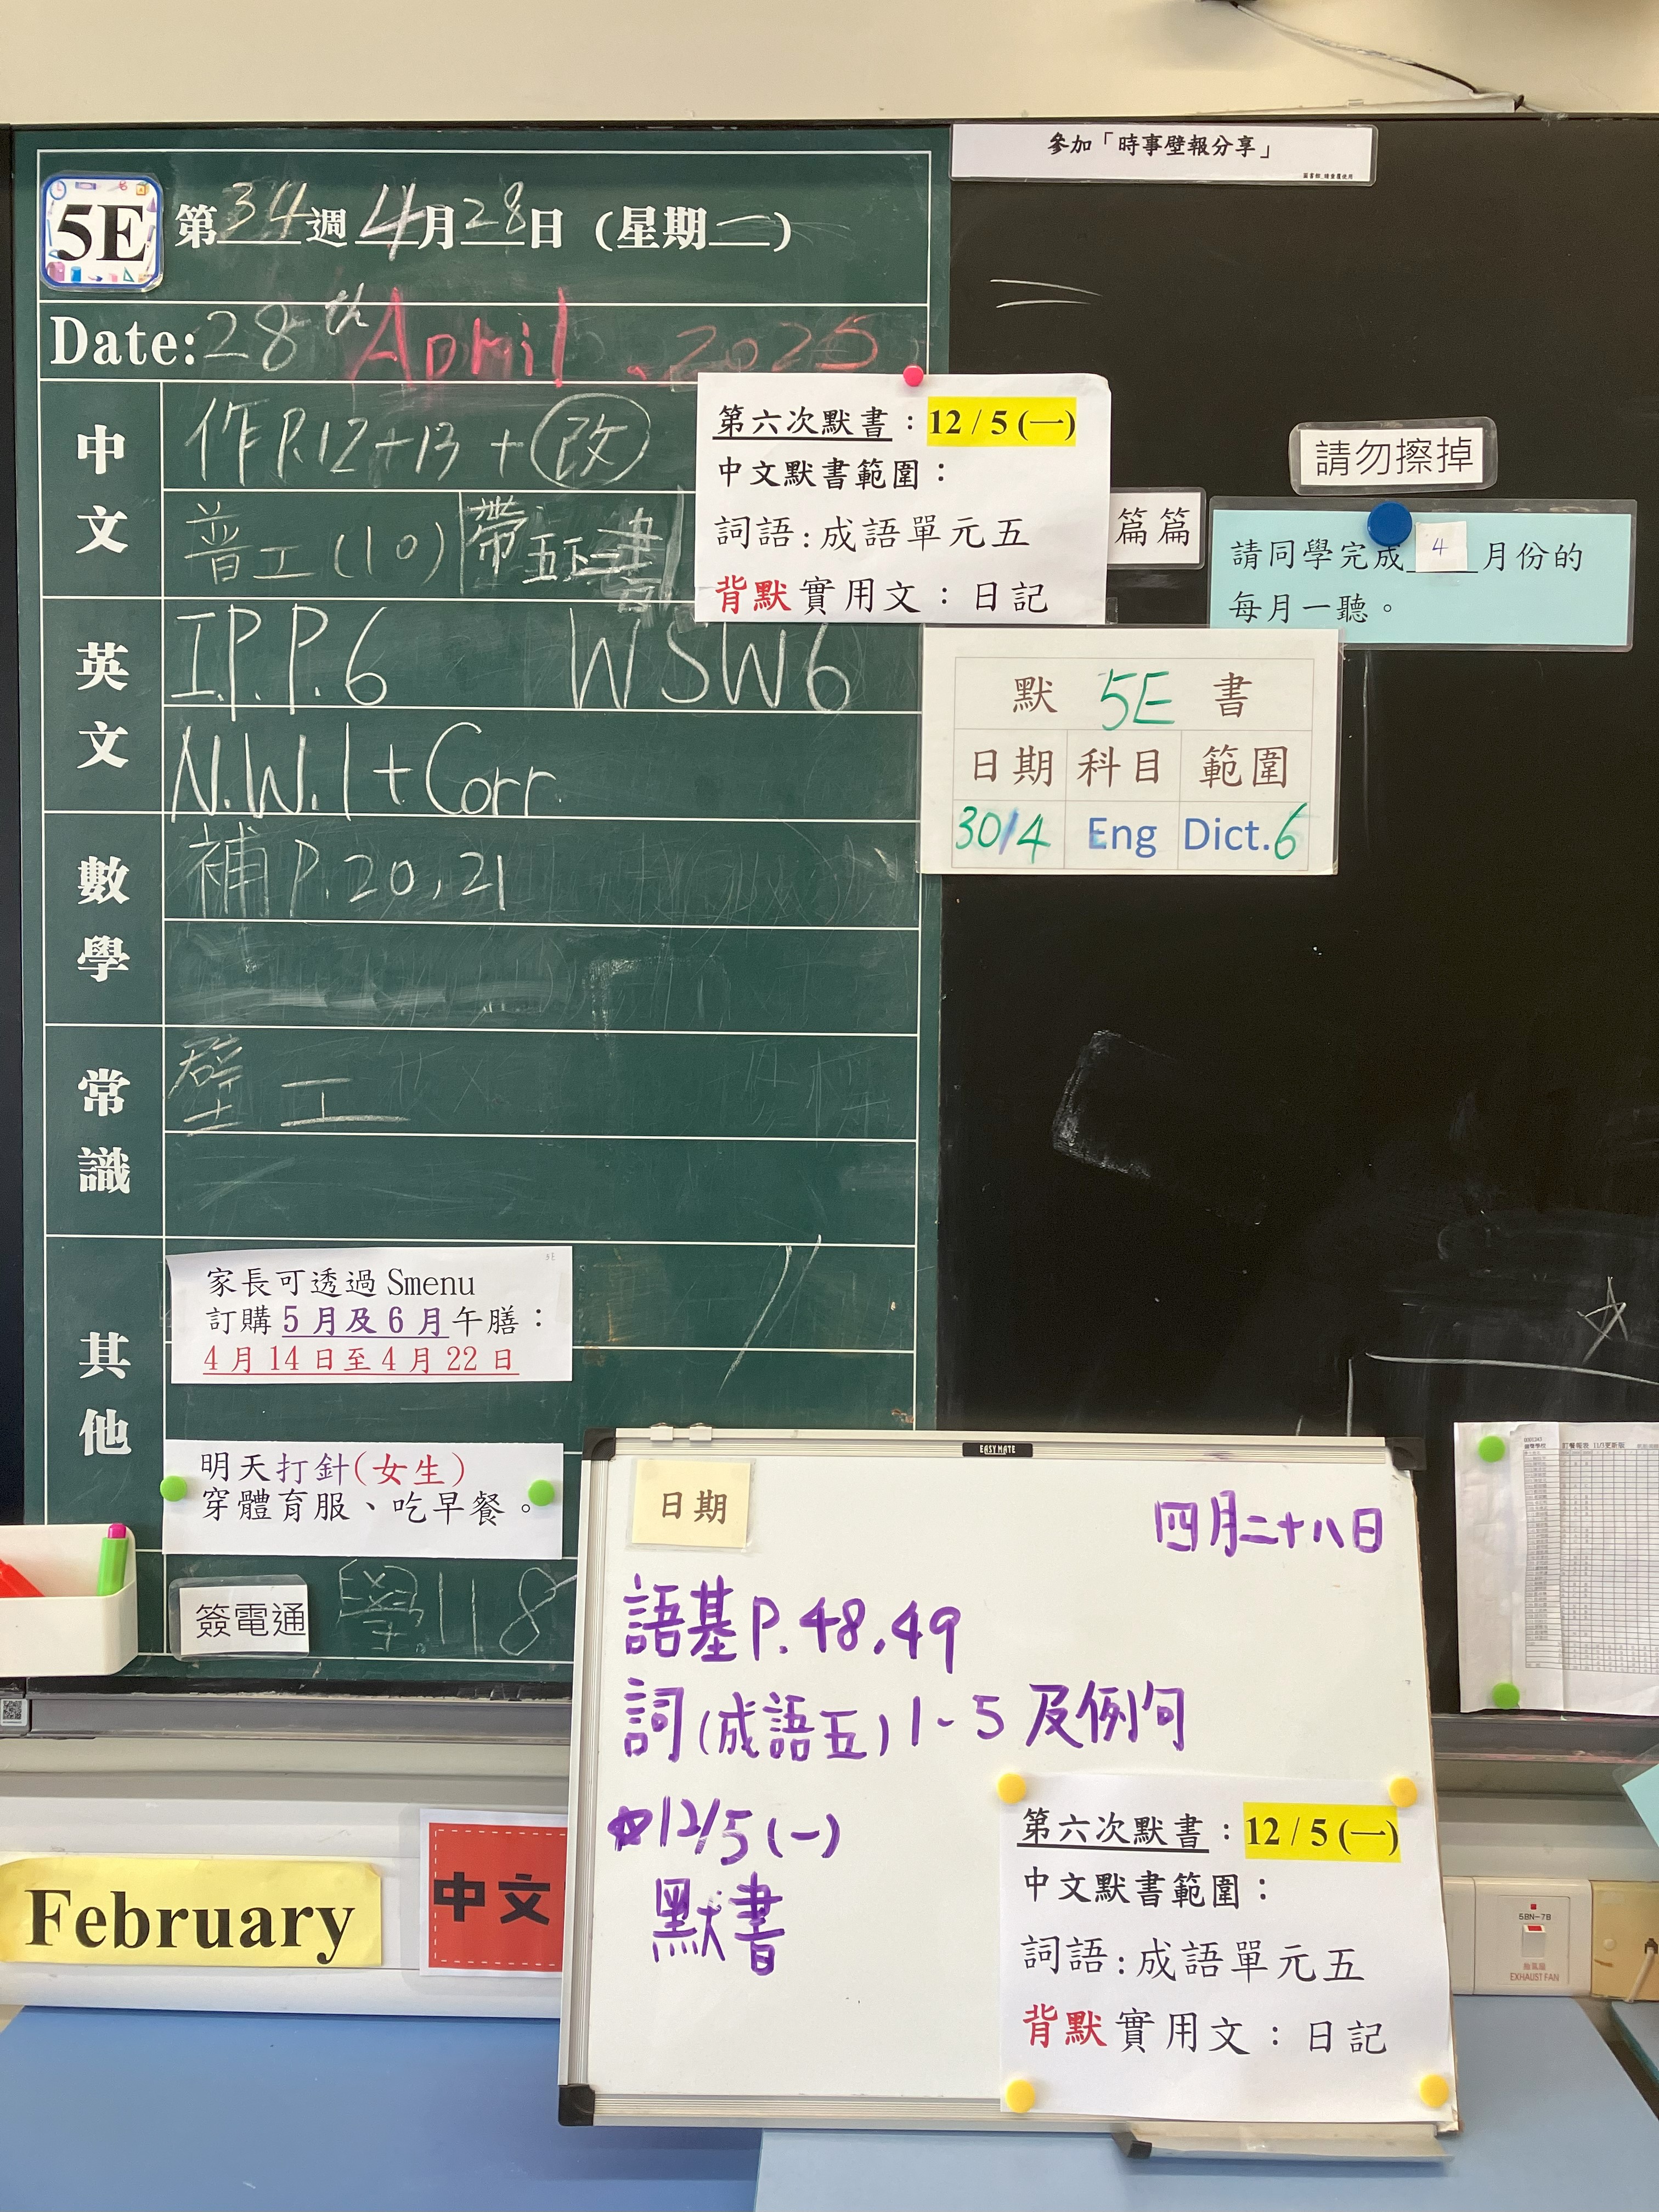 參加「時事壁報分享」
5E
第34週4月28日（星期一）
Date: 28th April . 2025
中文
作P.12-13 + 改
普工(10) 帶五下一書
英文
I.P.P.6 WSW6
N.W.1 + Corr.
數學
補P.20,21
常識
壁工
其他
家長可透過 Smenu
訂購 5 月及 6 月午膳：
4 月 14 日至 4 月 22 日
明天打針(女生)
穿體育服、吃早餐。
簽電通 學.118
第六次默書：12 / 5 (一)
中文默書範圍：
詞語：成語單元五
背默實用文：日記
篇篇
請勿擦掉
請同學完成 4 月份的
每月一聽。
默 5E 書
日期 科目 範圍
30/4 Eng Dict.6
EASY MATE
日期
四月二十八日
語基P.48,49
詞(成語五)1-5及例句
☆12/5(一)
默書
第六次默書：12 / 5 (一)
中文默書範圍：
詞語：成語單元五
背默實用文：日記
February
中文
5BN-7B
抽氣扇
EXHAUST FAN